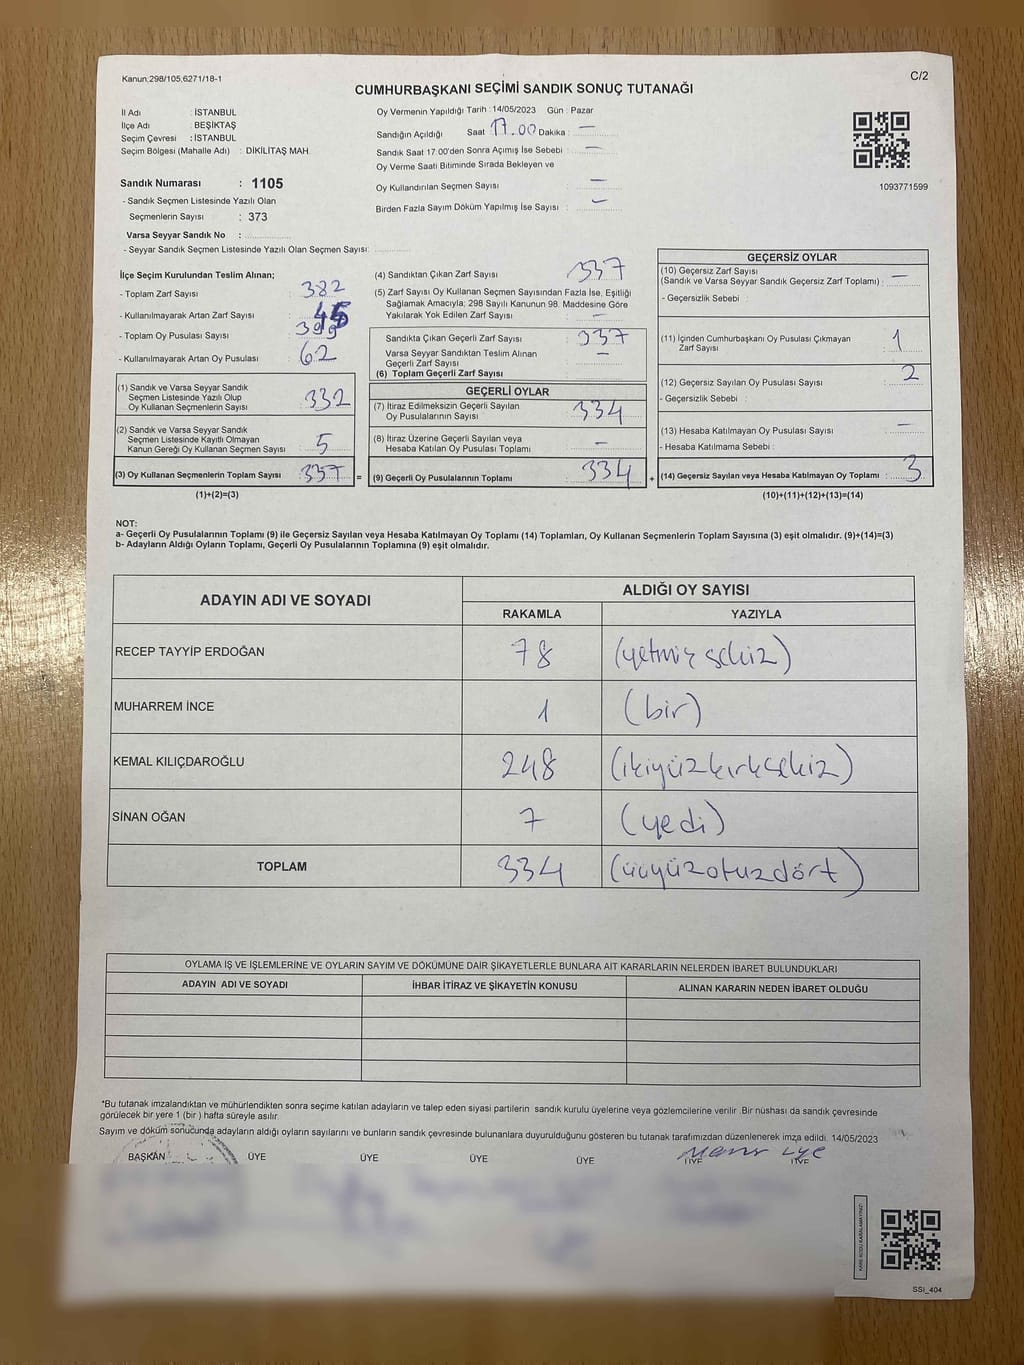 Kanun:298/105,6271/18-1
C/2
CUMHURBAŞKANI SEÇİMİ SANDIK SONUÇ TUTANAĞI
İl Adı : İSTANBUL
İlçe Adı : BEŞİKTAŞ
Seçim Çevresi : İSTANBUL
Seçim Bölgesi (Mahalle Adı) : DİKİLİTAŞ MAH.
Sandık Numarası : 1105
- Sandık Seçmen Listesinde Yazılı Olan
Seçmenlerin Sayısı : 373
Varsa Seyyar Sandık No :
- Seyyar Sandık Seçmen Listesinde Yazılı Olan Seçmen Sayısı:
Oy Vermenin Yapıldığı Tarih : 14/05/2023 Gün : Pazar
Sandığın Açıldığı Saat 17.00 Dakika : —
Sandık Saat 17:00'den Sonra Açımış İse Sebebi : —
Oy Verme Saati Bitiminde Sırada Bekleyen ve
Oy Kullandırılan Seçmen Sayısı : —
Birden Fazla Sayım Döküm Yapılmış İse Sayısı : —
1093771599
İlçe Seçim Kurulundan Teslim Alınan;
- Toplam Zarf Sayısı : 382
- Kullanılmayarak Artan Zarf Sayısı : 45
- Toplam Oy Pusulası Sayısı : 399
- Kullanılmayarak Artan Oy Pusulası : 62
(1) Sandık ve Varsa Seyyar Sandık
Seçmen Listesinde Yazılı Olup
Oy Kullanan Seçmenlerin Sayısı : 332
(2) Sandık ve Varsa Seyyar Sandık
Seçmen Listesinde Kayıtlı Olmayan
Kanun Gereği Oy Kullanan Seçmen Sayısı : 5
(3) Oy Kullanan Seçmenlerin Toplam Sayısı : 337 =
(1)+(2)=(3)
(4) Sandıktan Çıkan Zarf Sayısı : 337
(5) Zarf Sayısı Oy Kullanan Seçmen Sayısından Fazla İse, Eşitliği
Sağlamak Amacıyla; 298 Sayılı Kanunun 98. Maddesine Göre
Yakılarak Yok Edilen Zarf Sayısı : —
Sandıkta Çıkan Geçerli Zarf Sayısı : 337
Varsa Seyyar Sandıktan Teslim Alınan
Geçerli Zarf Sayısı : —
(6) Toplam Geçerli Zarf Sayısı :
GEÇERLİ OYLAR
(7) İtiraz Edilmeksizin Geçerli Sayılan
Oy Pusulalarının Sayısı : 334
(8) İtiraz Üzerine Geçerli Sayılan veya
Hesaba Katılan Oy Pusulası Toplamı : —
(9) Geçerli Oy Pusulalarının Toplamı : 334 +
GEÇERSİZ OYLAR
(10) Geçersiz Zarf Sayısı
(Sandık ve Varsa Seyyar Sandık Geçersiz Zarf Toplamı) : —
- Geçersizlik Sebebi :
(11) İçinden Cumhurbaşkanı Oy Pusulası Çıkmayan
Zarf Sayısı : 1
(12) Geçersiz Sayılan Oy Pusulası Sayısı : 2
- Geçersizlik Sebebi :
(13) Hesaba Katılmayan Oy Pusulası Sayısı : —
- Hesaba Katılmama Sebebi :
(14) Geçersiz Sayılan veya Hesaba Katılmayan Oy Toplamı : 3
(10)+(11)+(12)+(13)=(14)
NOT:
a- Geçerli Oy Pusulalarının Toplamı (9) ile Geçersiz Sayılan veya Hesaba Katılmayan Oy Toplamı (14) Toplamları, Oy Kullanan Seçmenlerin Toplam Sayısına (3) eşit olmalıdır. (9)+(14)=(3)
b- Adayların Aldığı Oyların Toplamı, Geçerli Oy Pusulalarının Toplamına (9) eşit olmalıdır.
ADAYIN ADI VE SOYADI
ALDIĞI OY SAYISI
RAKAMLA YAZIYLA
RECEP TAYYİP ERDOĞAN 78 (yetmiş sekiz)
MUHARREM İNCE 1 (bir)
KEMAL KILIÇDAROĞLU 248 (ikiyüzkırksekiz)
SİNAN OĞAN 7 (yedi)
TOPLAM 334 (üçyüzotuzdört)
OYLAMA İŞ VE İŞLEMLERİNE VE OYLARIN SAYIM VE DÖKÜMÜNE DAİR ŞİKAYETLERLE BUNLARA AİT KARARLARIN NELERDEN İBARET BULUNDUKLARI
ADAYIN ADI VE SOYADI İHBAR İTİRAZ VE ŞİKAYETİN KONUSU ALINAN KARARIN NEDEN İBARET OLDUĞU
*Bu tutanak imzalandıktan ve mühürlendikten sonra seçime katılan adayların ve talep eden siyasi partilerin sandık kurulu üyelerine veya gözlemcilerine verilir .Bir nüshası da sandık çevresinde
görülecek bir yere 1 (bir ) hafta süreyle asılır.
Sayım ve döküm sonucunda adayların aldığı oyların sayılarını ve bunların sandık çevresinde bulunanlara duyurulduğunu gösteren bu tutanak tarafımızdan düzenlenerek imza edildi. 14/05/2023
BAŞKAN ÜYE ÜYE ÜYE ÜYE ÜYE ÜYE
KARE KODU KARALAMAYINIZ!
SSI_404